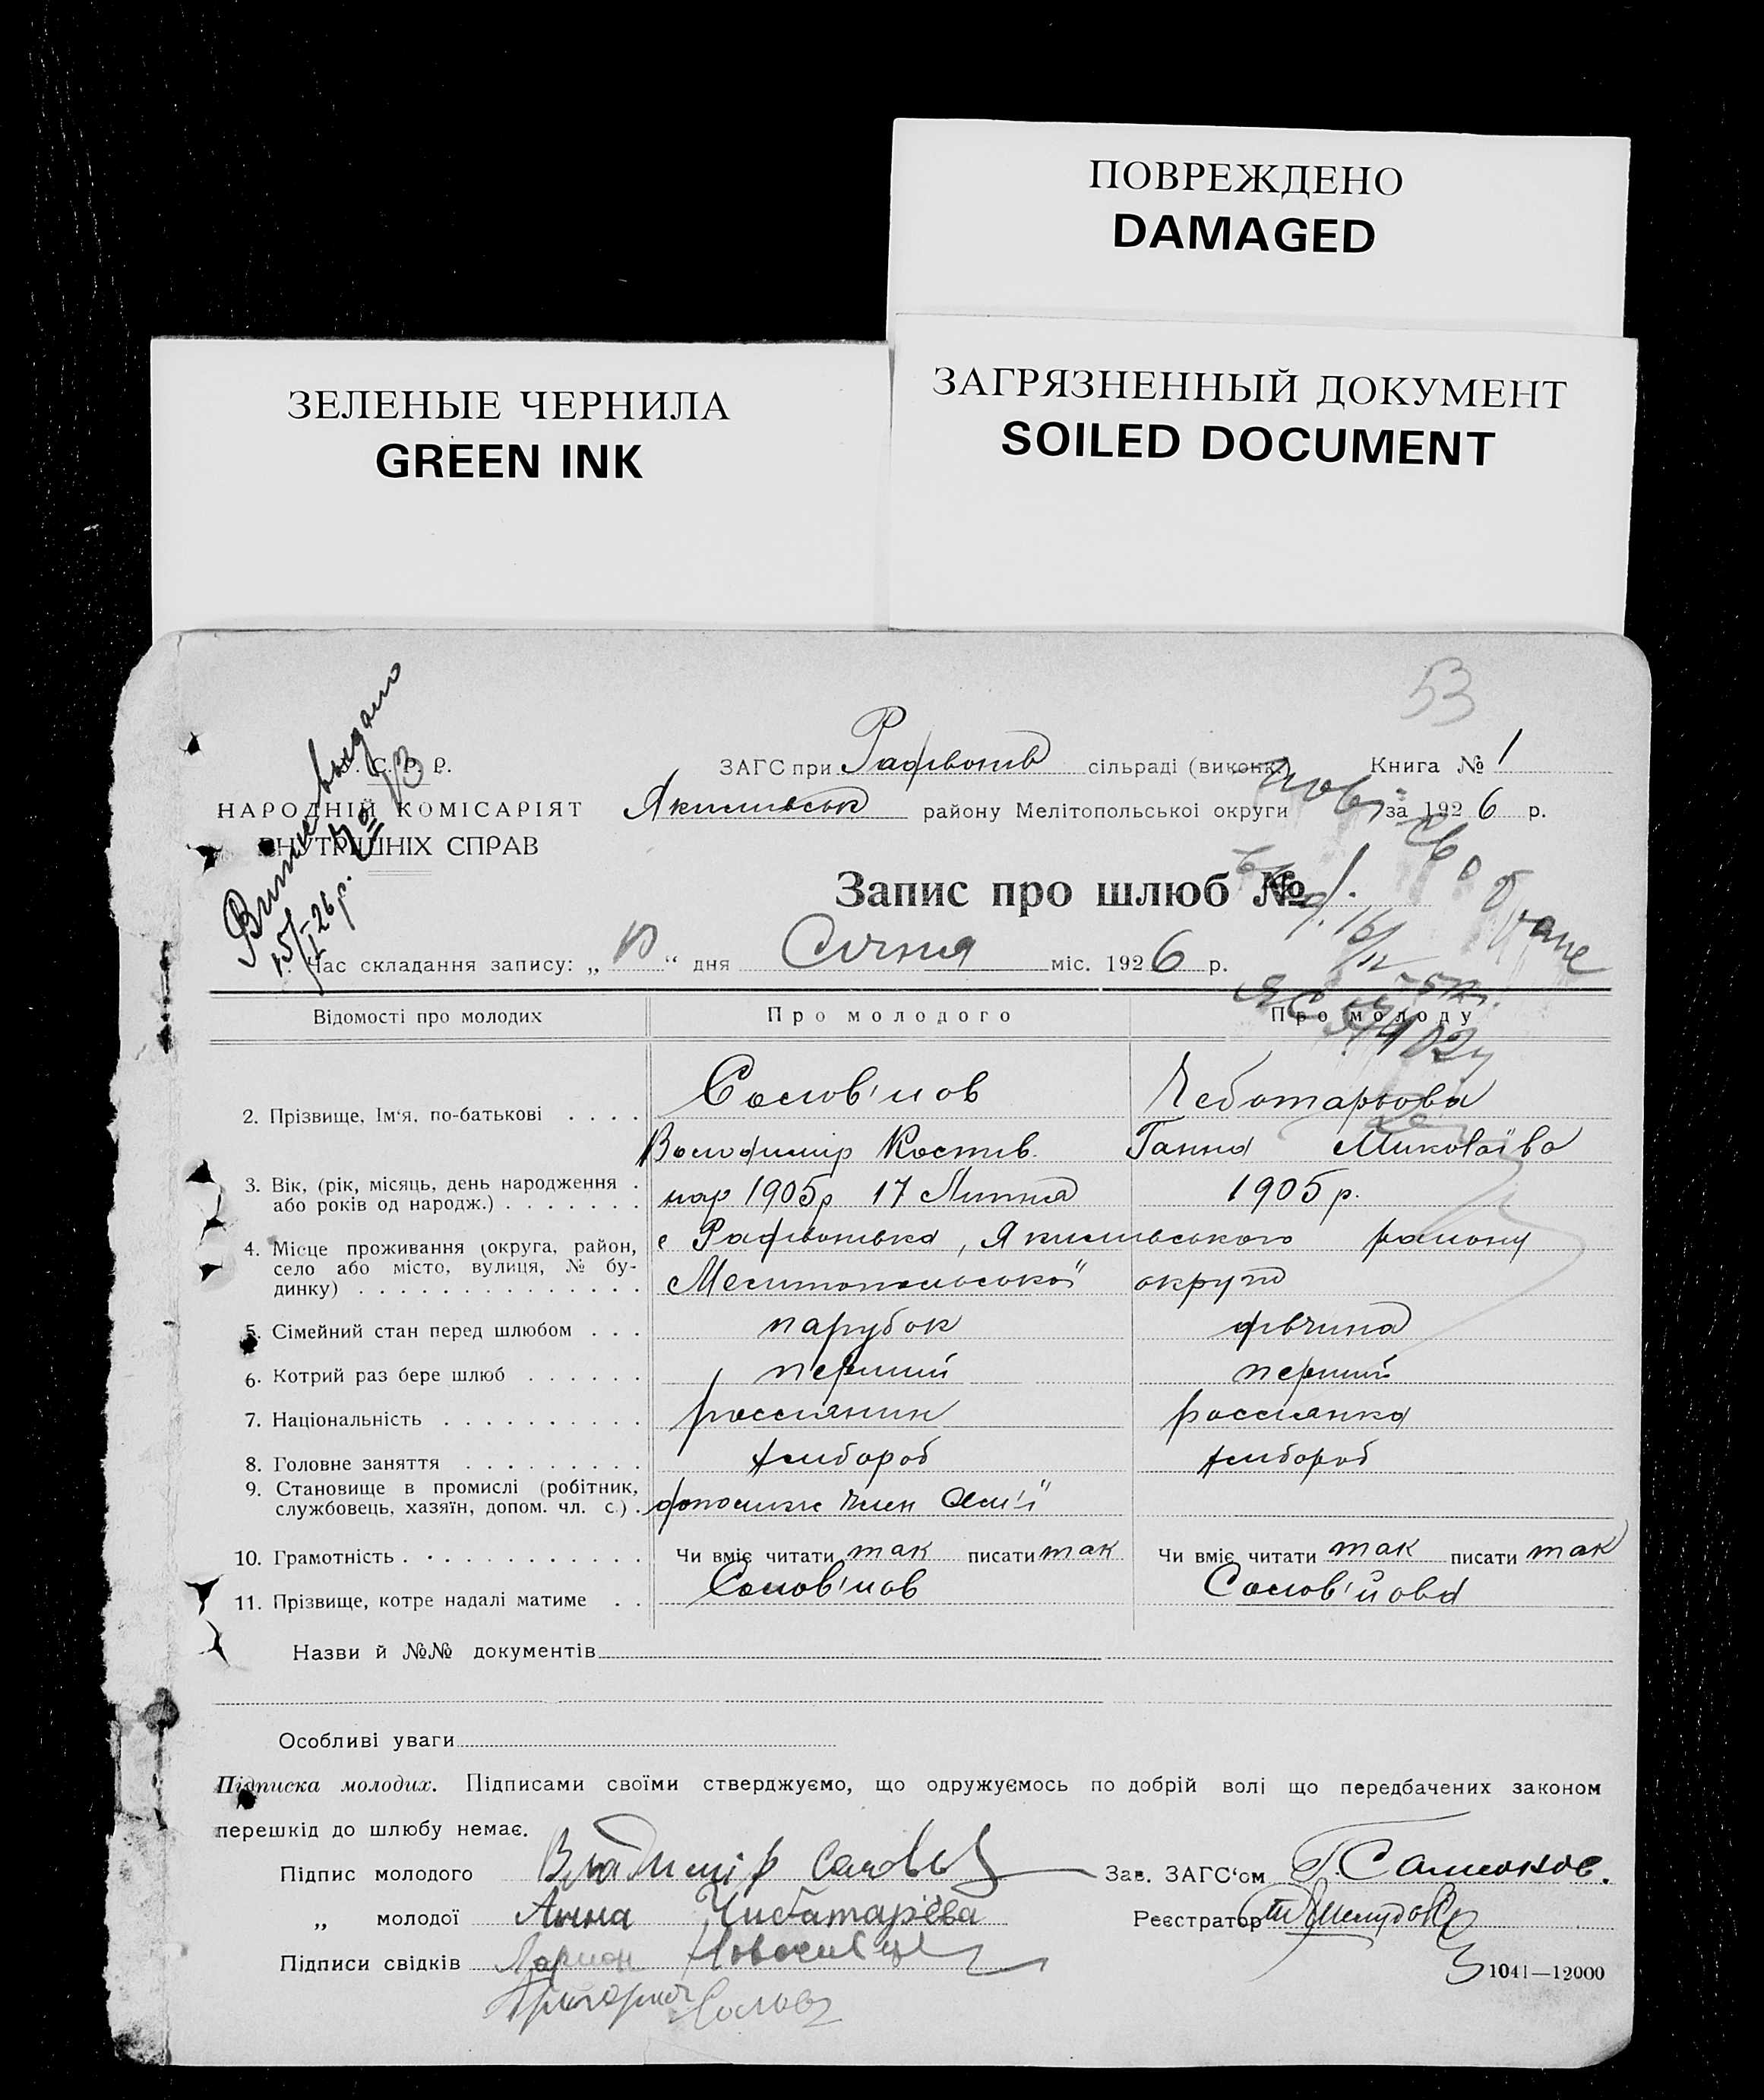 ПОВРЕЖДЕНО
DAMAGED
ЗЕЛЕНЫЕ ЧЕРНИЛА
GREEN INK
ЗАГРЯЗНЕННЫЙ ДОКУМЕНТ
SOILED DOCUMENT
53
Витяг выдано
15/I-26 р. №
У. С. Р. Р.
НАРОДНІЙ КОМІСАРІЯТ
ВНУТРІШНІХ СПРАВ
ЗАГС при Радівонів сільраді (виконк) Книга № 1
Якимівськ району Мелітопольської округи за 1926 р.
Запис про шлюб №
Час складання запису: „ “ дня Січня міс. 1926 р.
Відомості про молодих Про молодого Про молоду
2. Прізвище, Ім‘я, по-батькові . . . . Солов'йов Чеботарьова
Володимир Костів. Ганна Миколаїва
3. Вік, (рік, місяць, день народження . або років од народж.) . . . . . . . нар 1905 р 17 Липня 1905 р.
4. Місце проживання (округа, район, с Радівонівка, Якимівського району
село або місто, вулиця, № бу-
динку) . . . . . . . . . . . . . . Мелитопольської округи
5. Сімейний стан перед шлюбом . . . парубок дівчина
6. Котрий раз бере шлюб . . . . . . перший перший
7. Національність . . . . . . . . . . россиянин россиянка
8. Головне заняття . . . . . . . . . хлибороб хлибороб
9. Становище в промислі (робітник,
службовець, хазяїн, допом. чл. с.) . член сем'ї
10. Грамотність . . . . . . . . . . . . Чи вміє читати так писати так Чи вміє читати так писати так
11. Прізвище, котре надалі матиме . . Солов'йов Солов'йова
Назви й №№ документів
Особливі уваги
Підписка молодих. Підписами своїми стверджуємо, що одружуємось по добрій волі що передбачених законом
перешкід до шлюбу немає.
Підпис молодого Владимір Зав. ЗАГС‘ом
„ молодої Анна Чибатарёва Реєстратор
Підписи свідків Ларион
1041—12000